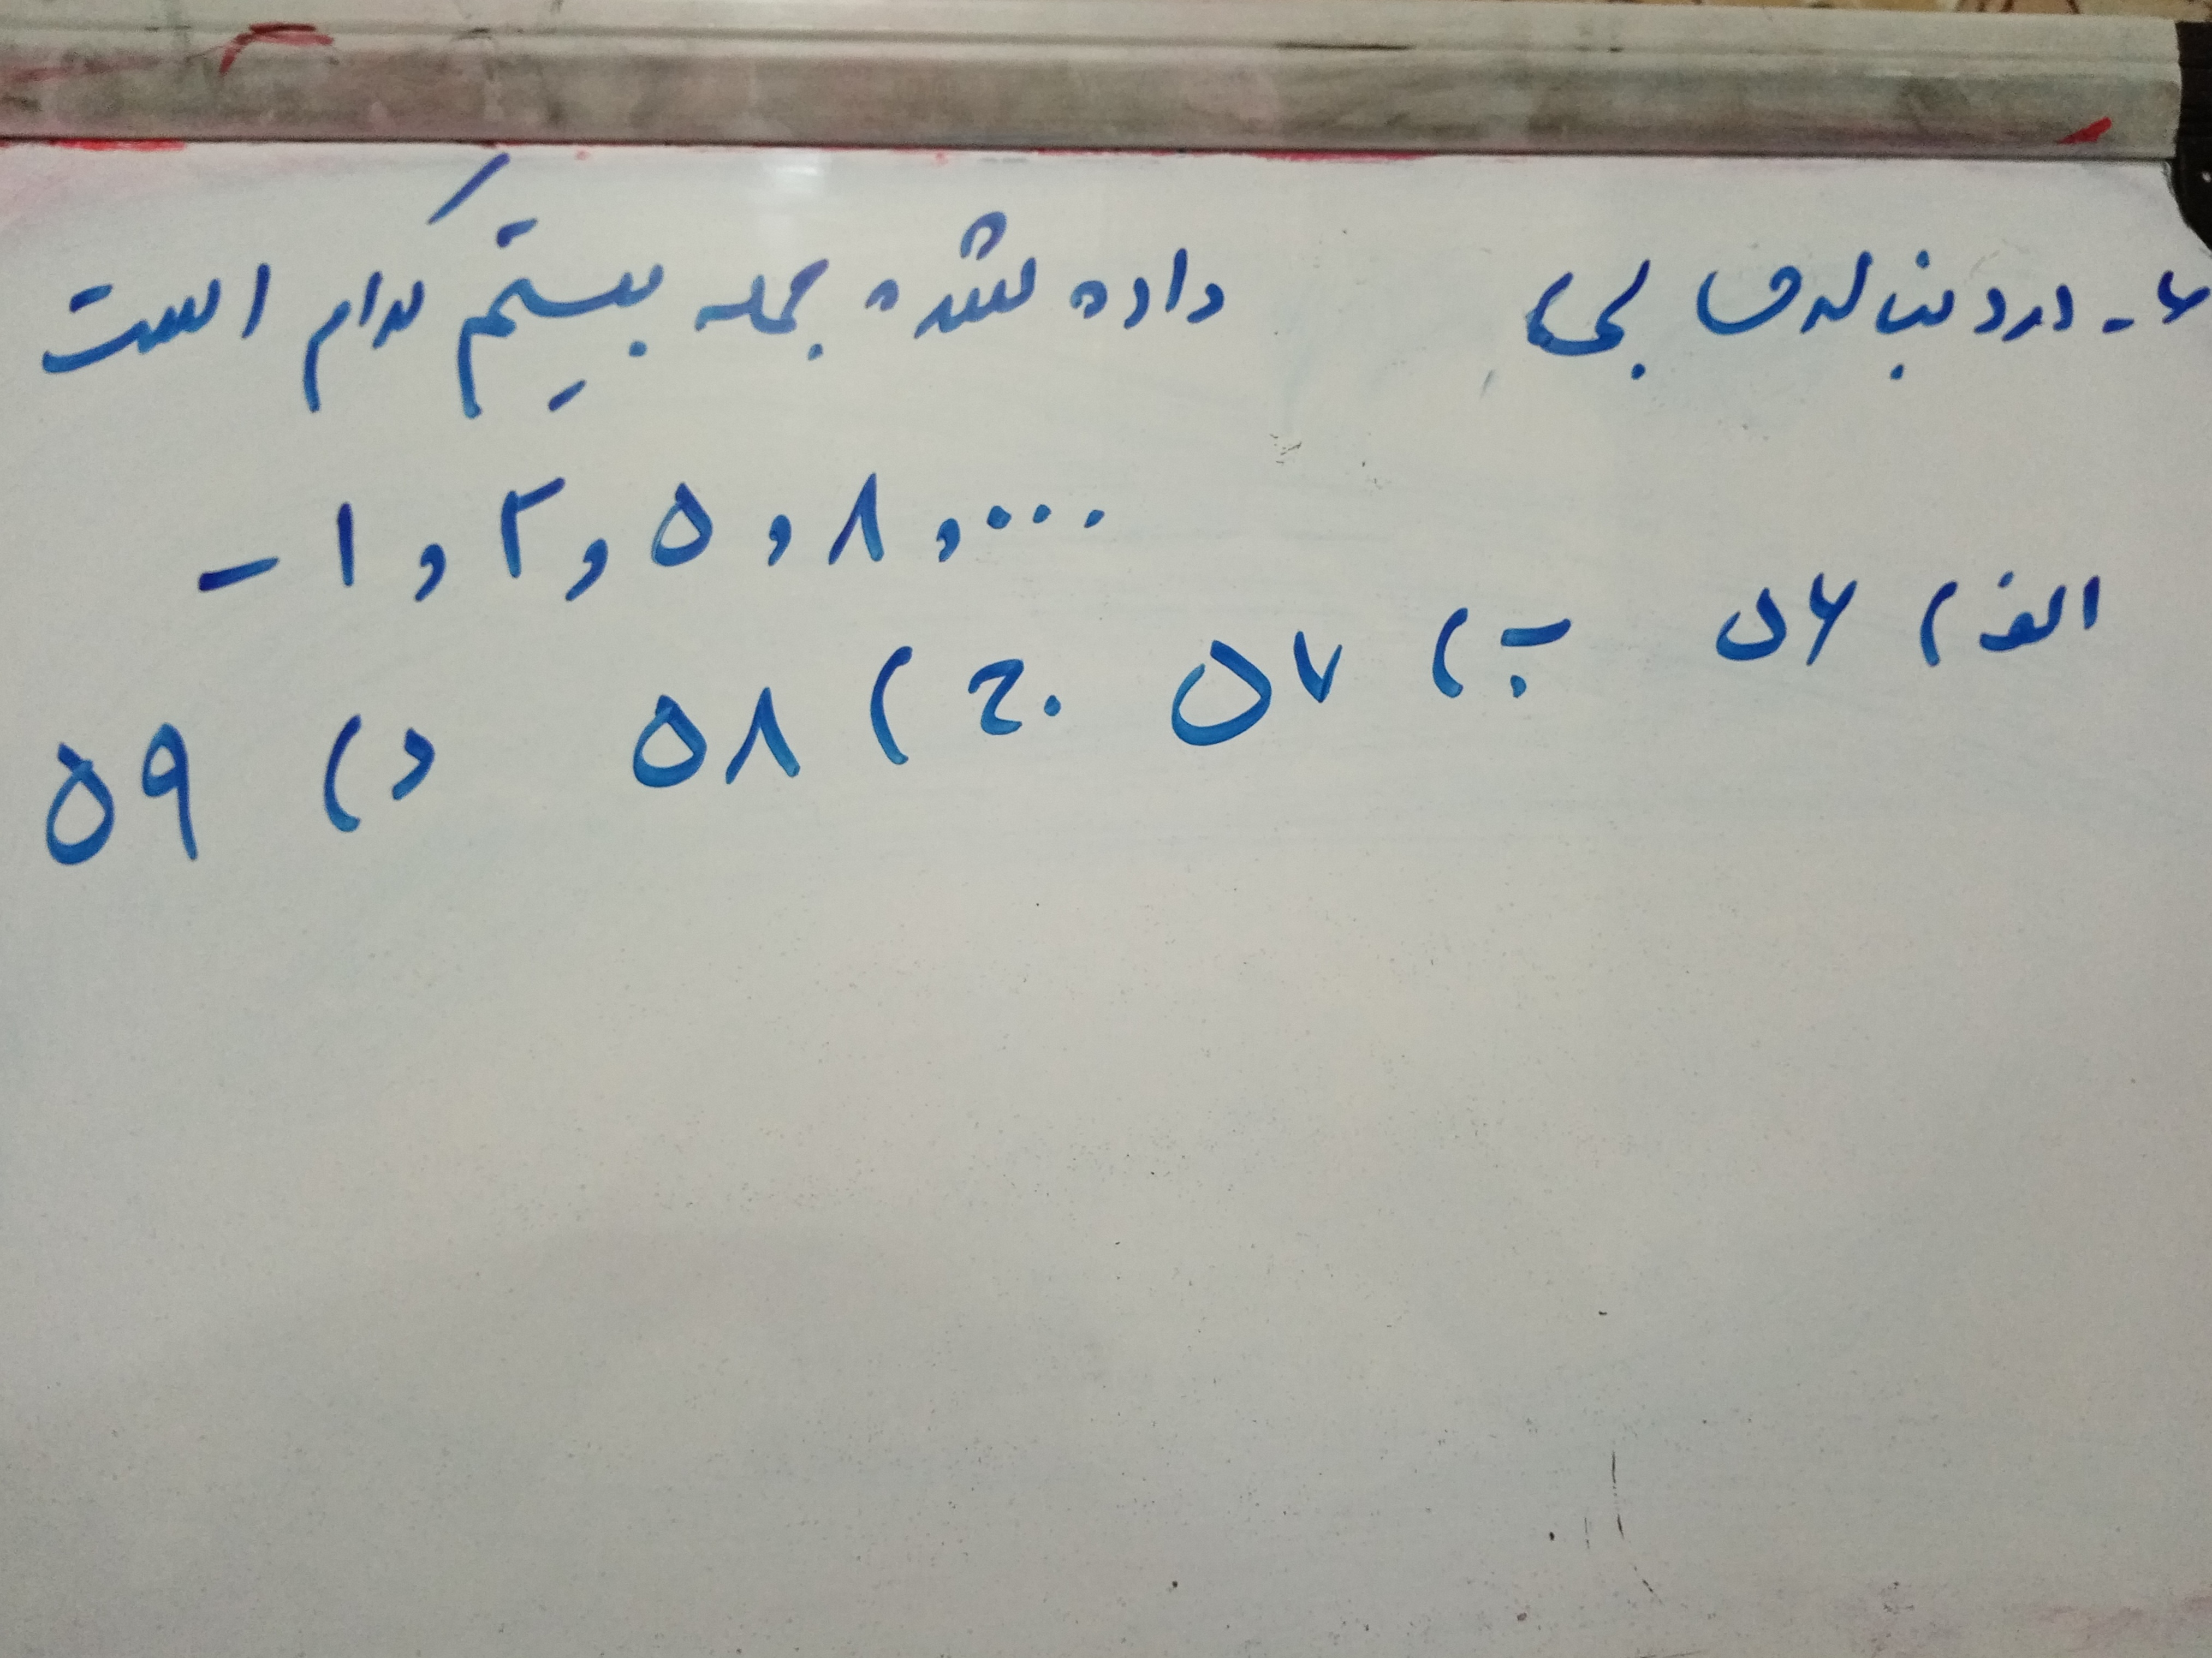 ۶- در دنباله حسابی داده شده جمله بیستم کدام است
-۱ , ۲ , ۵ , ۸ , ....
الف) ۵۶ ب) ۵۷ ج) ۵۸ د) ۵۹